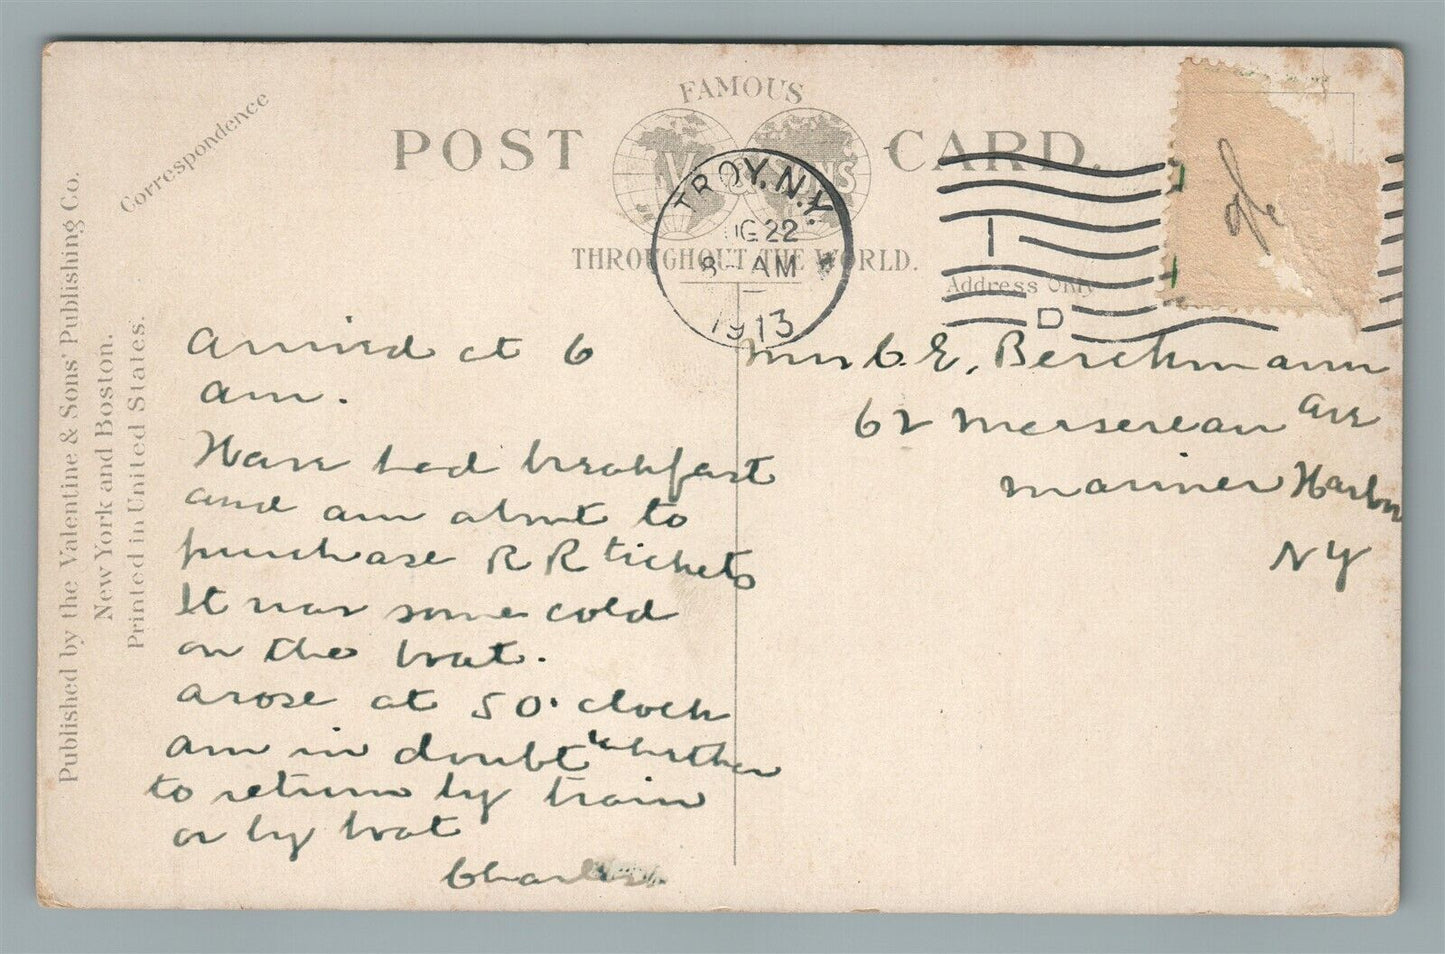 FAMOUS
POST CARD.
THROUGHOUT THE WORLD.
Correspondence
Address Only
Published by the Valentine & Sons' Publishing Co.
New York and Boston.
Printed in United States.
TROY, N.Y.
UG 22
8-AM
1913
D
Arrived at 6
am.
Have had breakfast
and am about to
purchase R R tickets
It was some cold
on the boat.
arose at 5 O'clock
am in doubt whether
to return by train
or by boat
Charles
Mrs C. E. Berckmann
62 Mersereau Ave
Mariner Harbor
NY